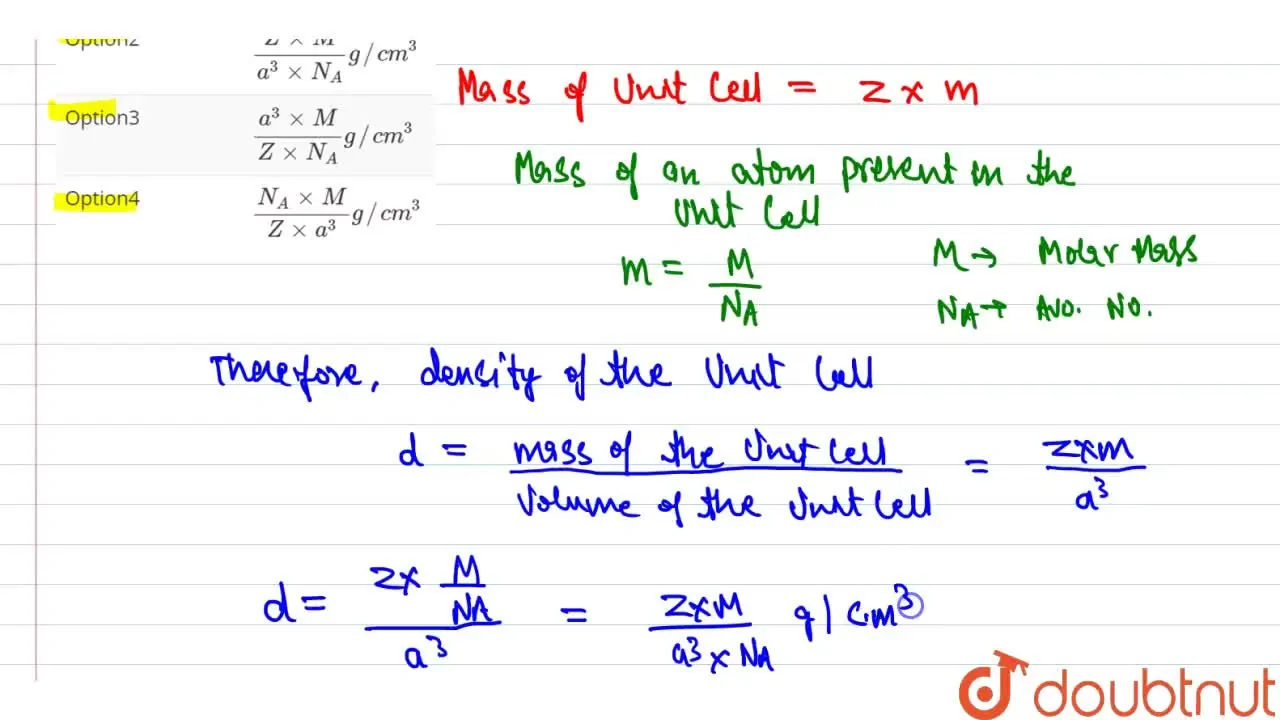 Option2 Z × M / a³ × N_A g/cm³
Option3 a³ × M / Z × N_A g/cm³
Option4 N_A × M / Z × a³ g/cm³
Mass of Unit Cell = Z × m
Mass of an atom present in the
Unit Cell
m = M / NA
M → Molar Mass
NA → Avo. No.
Therefore, density of the Unit Cell
d = mass of the Unit Cell / Volume of the Unit Cell = Z×m / a³
d = Z× M/NA / a³ = Z×M / a³ × NA g/cm³
doubtnut